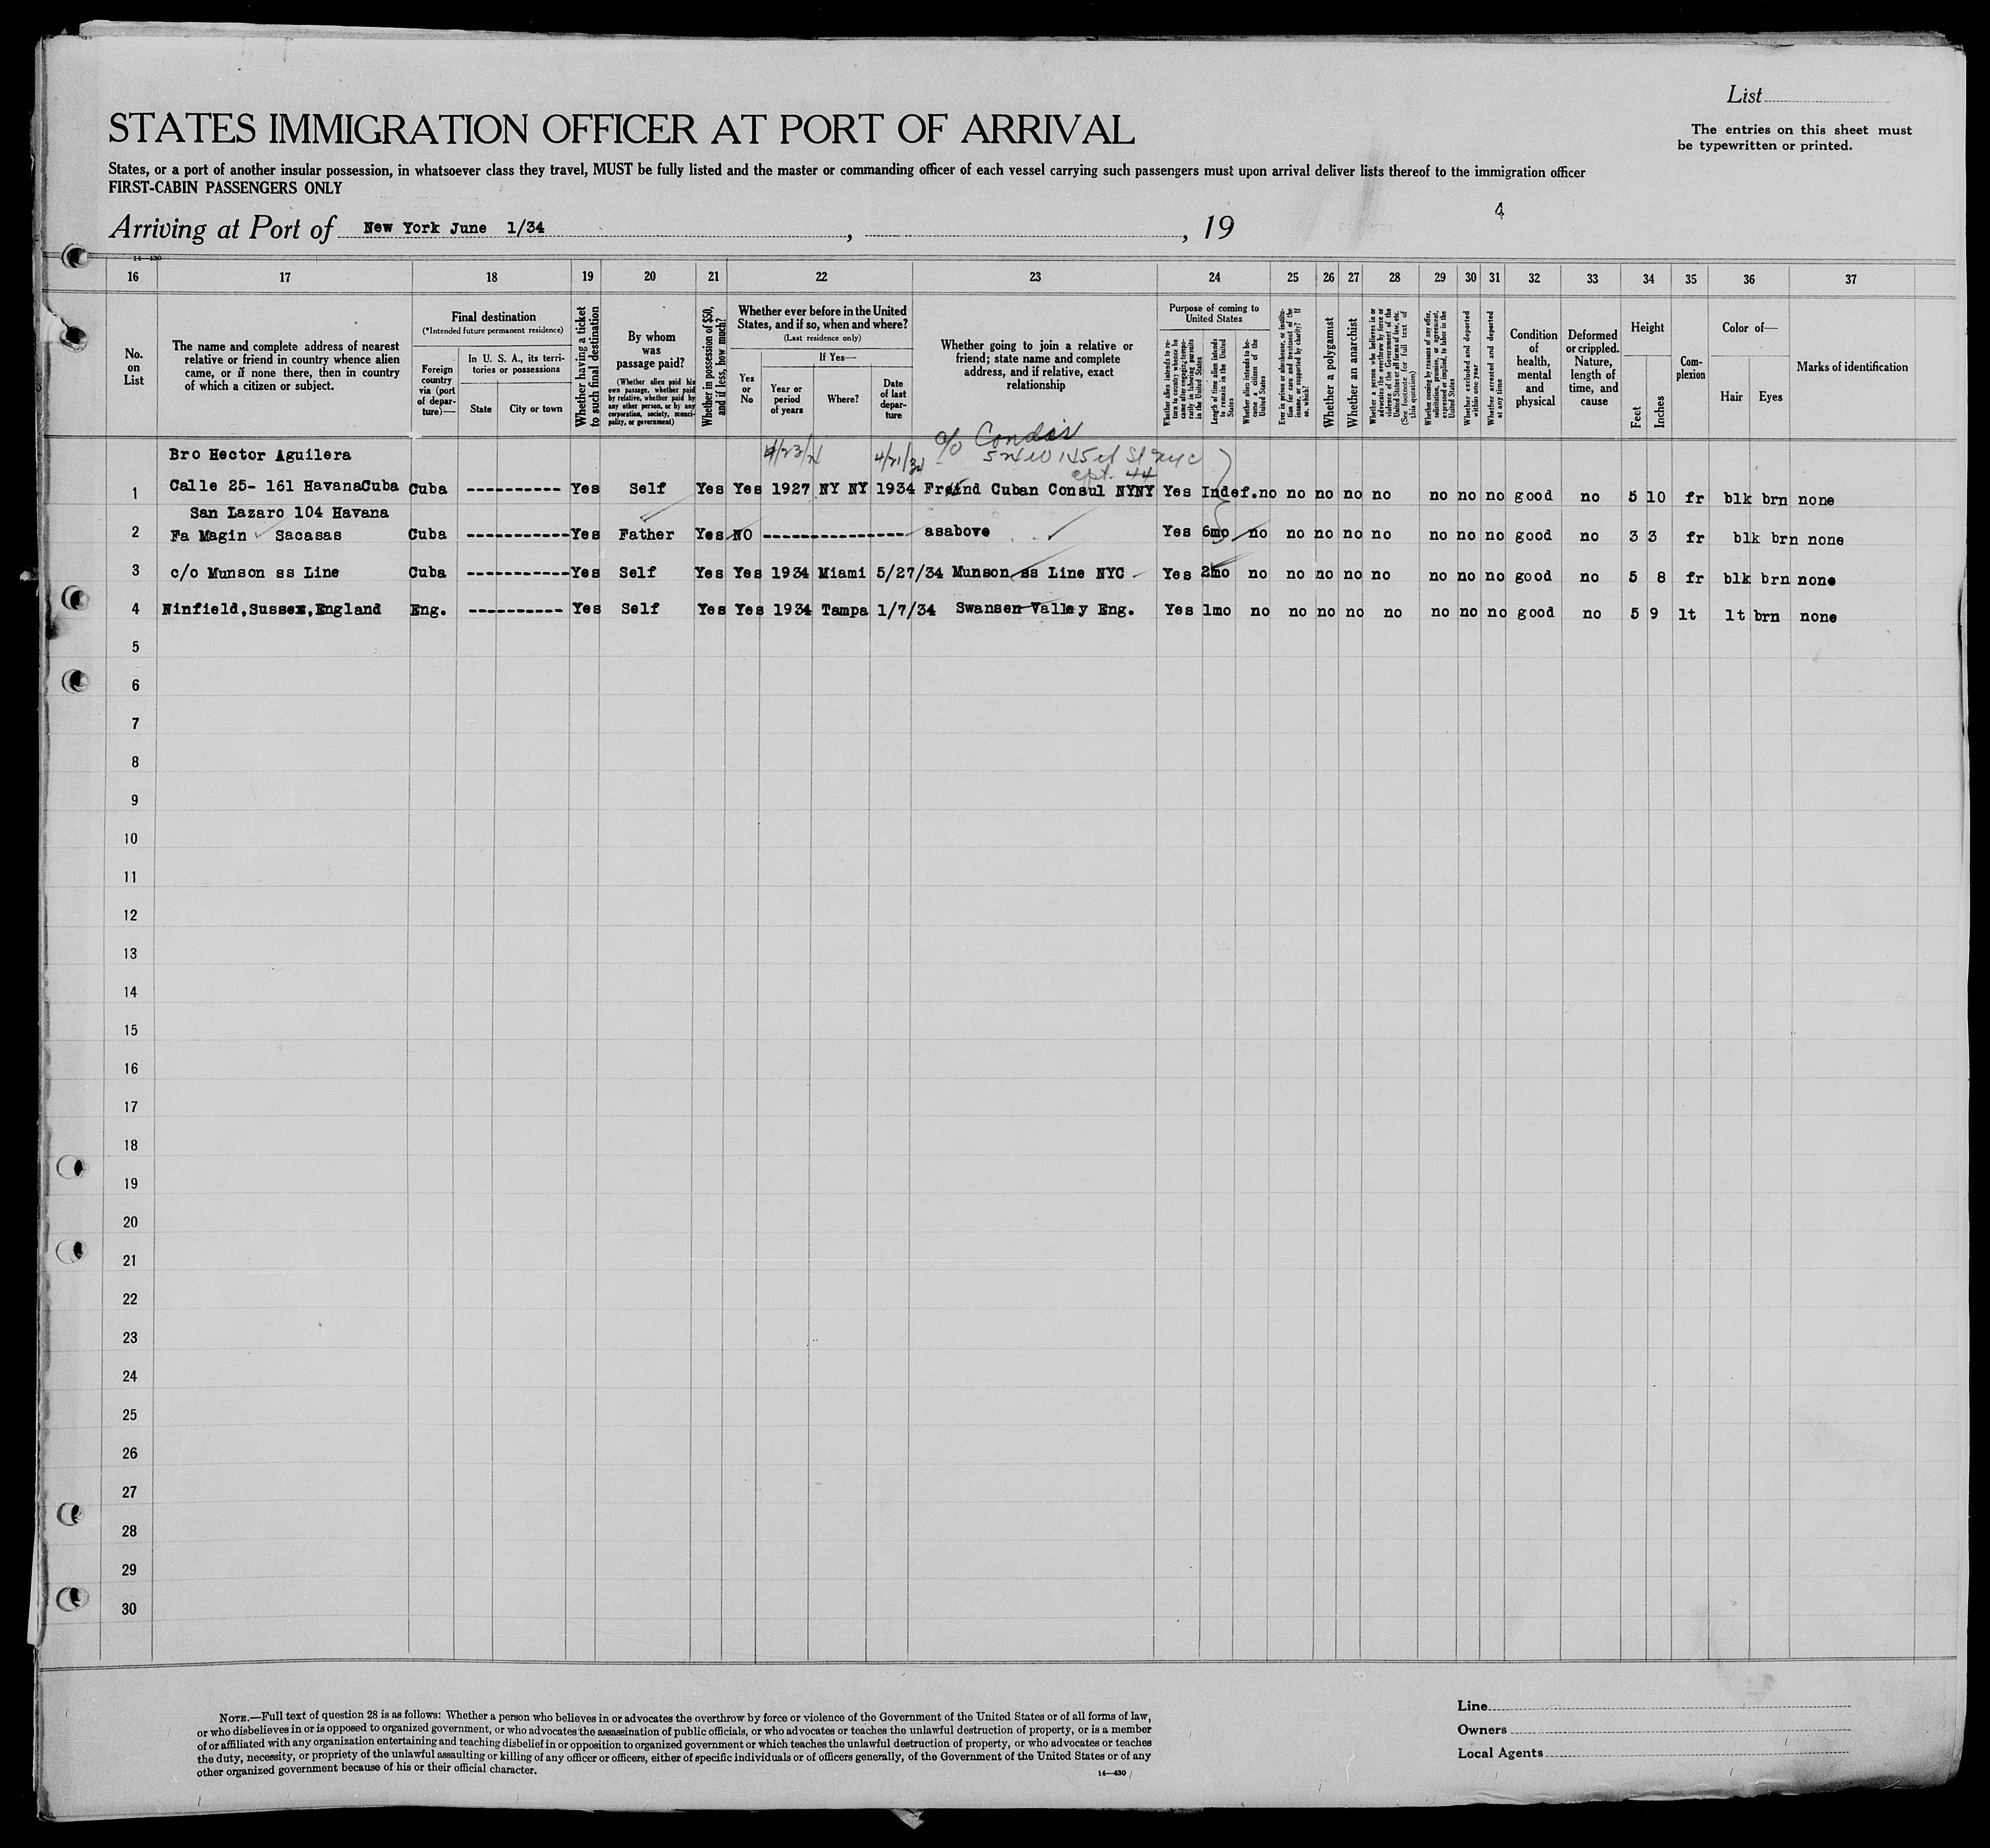 List
STATES IMMIGRATION OFFICER AT PORT OF ARRIVAL
The entries on this sheet must
be typewritten or printed.
States, or a port of another insular possession, in whatsoever class they travel, MUST be fully listed and the master or commanding officer of each vessel carrying such passengers must upon arrival deliver lists thereof to the immigration officer
FIRST-CABIN PASSENGERS ONLY
4
Arriving at Port of New York June 1/34 , , 19
14-430
16 17 18 19 20 21 22 23 24 25 26 27 28 29 30 31 32 33 34 35 36 37
No. on List
The name and complete address of nearest relative or friend in country whence alien came, or if none there, then in country of which a citizen or subject.
Final destination
(*Intended future permanent residence)
Foreign country via (port of departure)—
In U. S. A., its territories or possessions
State
City or town
Whether having a ticket to such final destination
By whom was passage paid?
(Whether alien paid his own passage, whether paid by relative, whether paid by any other person, or by any corporation, society, municipality, or government)
Whether in possession of $50, and if less, how much?
Whether ever before in the United States, and if so, when and where?
(Last residence only)
If Yes—
Yes or No
Year or period of years
Where?
Date of last departure
Whether going to join a relative or friend; state name and complete address, and if relative, exact relationship
Purpose of coming to United States
Whether alien intends to return to country whence he came after engaging temporarily in laboring pursuits in the United States
Length of time alien intends to remain in the United States
Whether alien intends to become a citizen of the United States
Ever in prison or almshouse, or institution for care and treatment of the insane, or supported by charity? If so, which?
Whether a polygamist
Whether an anarchist
Whether a person who believes in or advocates the overthrow by force or violence of the Government of the United States or all forms of law, etc. (See footnote for full text of this question)
Whether coming by reasons of any offer, solicitation, promise, or agreement, expressed or implied, to labor in the United States
Whether excluded and deported within one year
Whether arrested and deported at any time
Condition of health, mental and physical
Deformed or crippled. Nature, length of time, and cause
Height
Feet
Inches
Complexion
Color of—
Hair
Eyes
Marks of identification
c/o
524 W 145 St NYC
apt. 44
Bro Hector Aguilera
1 Calle 25- 161 HavanaCuba Cuba ---------- Yes Self Yes Yes 1927 NY NY 1934 Freind Cuban Consul NYNY Yes Indef. no no no no no no no no good no 5 10 fr blk brn none
San Lazaro 104 Havana
2 Fa Magin Sacasas Cuba ----------- Yes Father Yes NO ---------------- asabove Yes 6mo no no no no no no no no good no 3 3 fr blk brn none
3 c/o Munson ss Line Cuba ----------- Yes Self Yes Yes 1934 Miami 5/27/34 Munson ss Line NYC Yes 2mo no no no no no no no no good no 5 8 fr blk brn none
4 Ninfield,Sussex,England Eng. ---------- Yes Self Yes Yes 1934 Tampa 1/7/34 Swansen Valley Eng. Yes 1mo no no no no no no no no good no 5 9 lt lt brn none
5
6
7
8
9
10
11
12
13
14
15
16
17
18
19
20
21
22
23
24
25
26
27
28
29
30
NOTE.—Full text of question 28 is as follows: Whether a person who believes in or advocates the overthrow by force or violence of the Government of the United States or of all forms of law,
or who disbelieves in or is opposed to organized government, or who advocates the assassination of public officials, or who advocates or teaches the unlawful destruction of property, or is a member
of or affiliated with any organization entertaining and teaching disbelief in or opposition to organized government or which teaches the unlawful destruction of property, or who advocates or teaches
the duty, necessity, or propriety of the unlawful assaulting or killing of any officer or officers, either of specific individuals or of officers generally, of the Government of the United States or of any
other organized government because of his or their official character.
14—430
Line
Owners
Local Agents